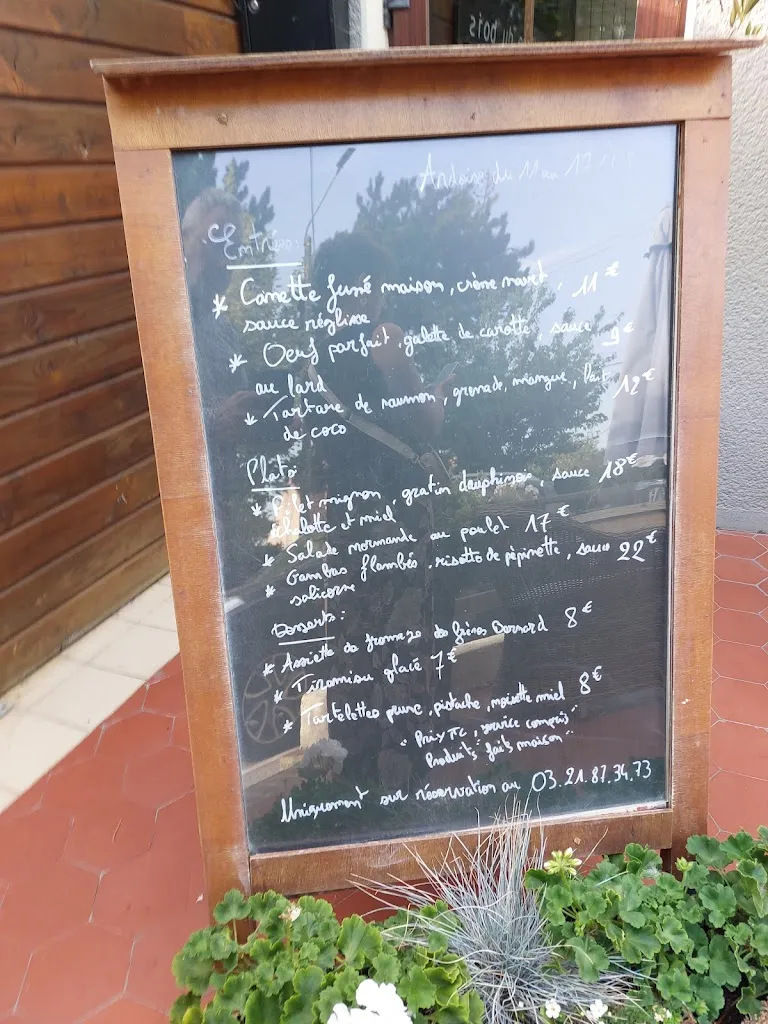 du bois
Ardoise du 11 au 17
Entrées
* Canette fumé maison, crème navet, 11€
sauce réglisse
* Oeuf parfait, galette de carotte, sauce 9€
au lard
* Tartare de saumon, grenade, mangue, lait 12€
de coco
Plats:
* Filet mignon, gratin dauphinois, sauce 18€
échalotte et miel
* Salade normande au poulet 17€
* Gambas flambés, risotto de pépinette, sauce 22€
salicorne
Desserts:
* Assiette de fromage des frères Bernard 8€
* Tiramisu glacé 7€
* Tartelettes prune, pistache, noisette miel 8€
"Prix TTC, service compris"
Produits "faits maison"
Uniquement sur réservation au 03.21.87.34.73